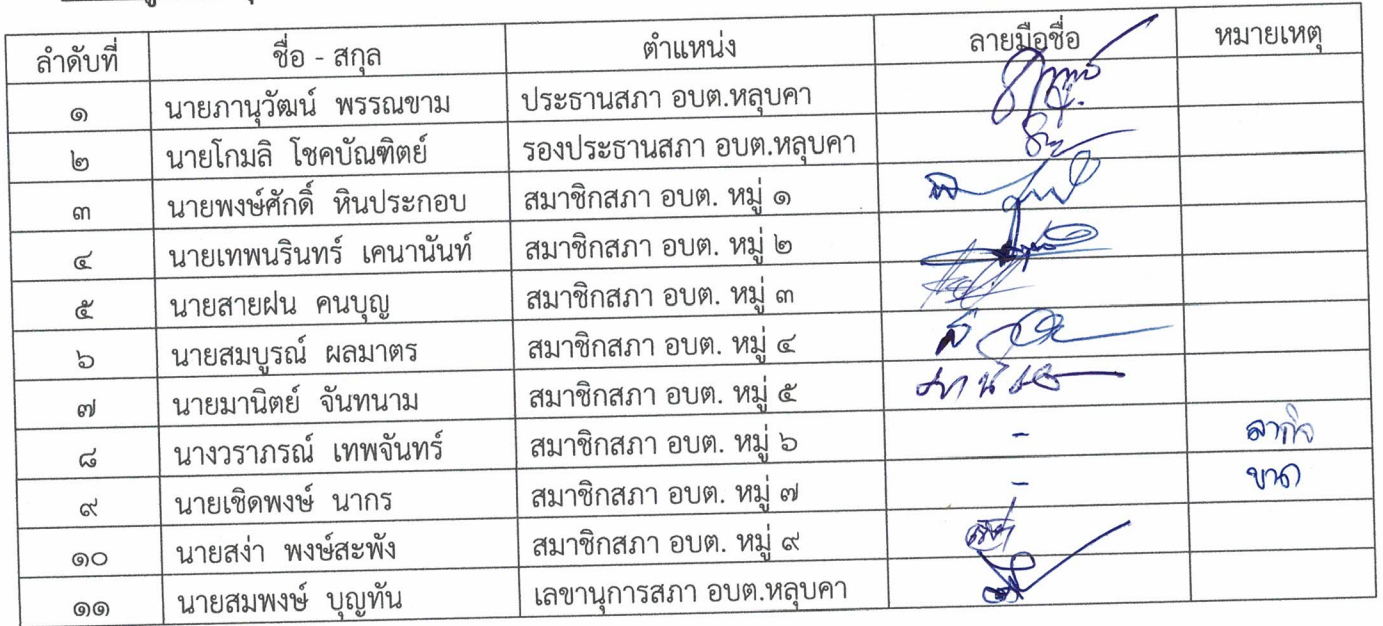 ลำดับที่ ชื่อ - สกุล ตำแหน่ง ลายมือชื่อ หมายเหตุ
๑ นายภานุวัฒน์ พรรณขาม ประธานสภา อบต.หลุบคา
๒ นายโกมลิ โชคบัณฑิตย์ รองประธานสภา อบต.หลุบคา
๓ นายพงษ์ศักดิ์ หินประกอบ สมาชิกสภา อบต. หมู่ ๑
๔ นายเทพนรินทร์ เคนานันท์ สมาชิกสภา อบต. หมู่ ๒
๕ นายสายฝน คนบุญ สมาชิกสภา อบต. หมู่ ๓
๖ นายสมบูรณ์ ผลมาตร สมาชิกสภา อบต. หมู่ ๔
๗ นายมานิตย์ จันทนาม สมาชิกสภา อบต. หมู่ ๕
๘ นางวราภรณ์ เทพจันทร์ สมาชิกสภา อบต. หมู่ ๖ - ลากิจ
๙ นายเชิดพงษ์ นากร สมาชิกสภา อบต. หมู่ ๗ - ขาด
๑๐ นายสง่า พงษ์สะพัง สมาชิกสภา อบต. หมู่ ๙
๑๑ นายสมพงษ์ บุญทัน เลขานุการสภา อบต.หลุบคา